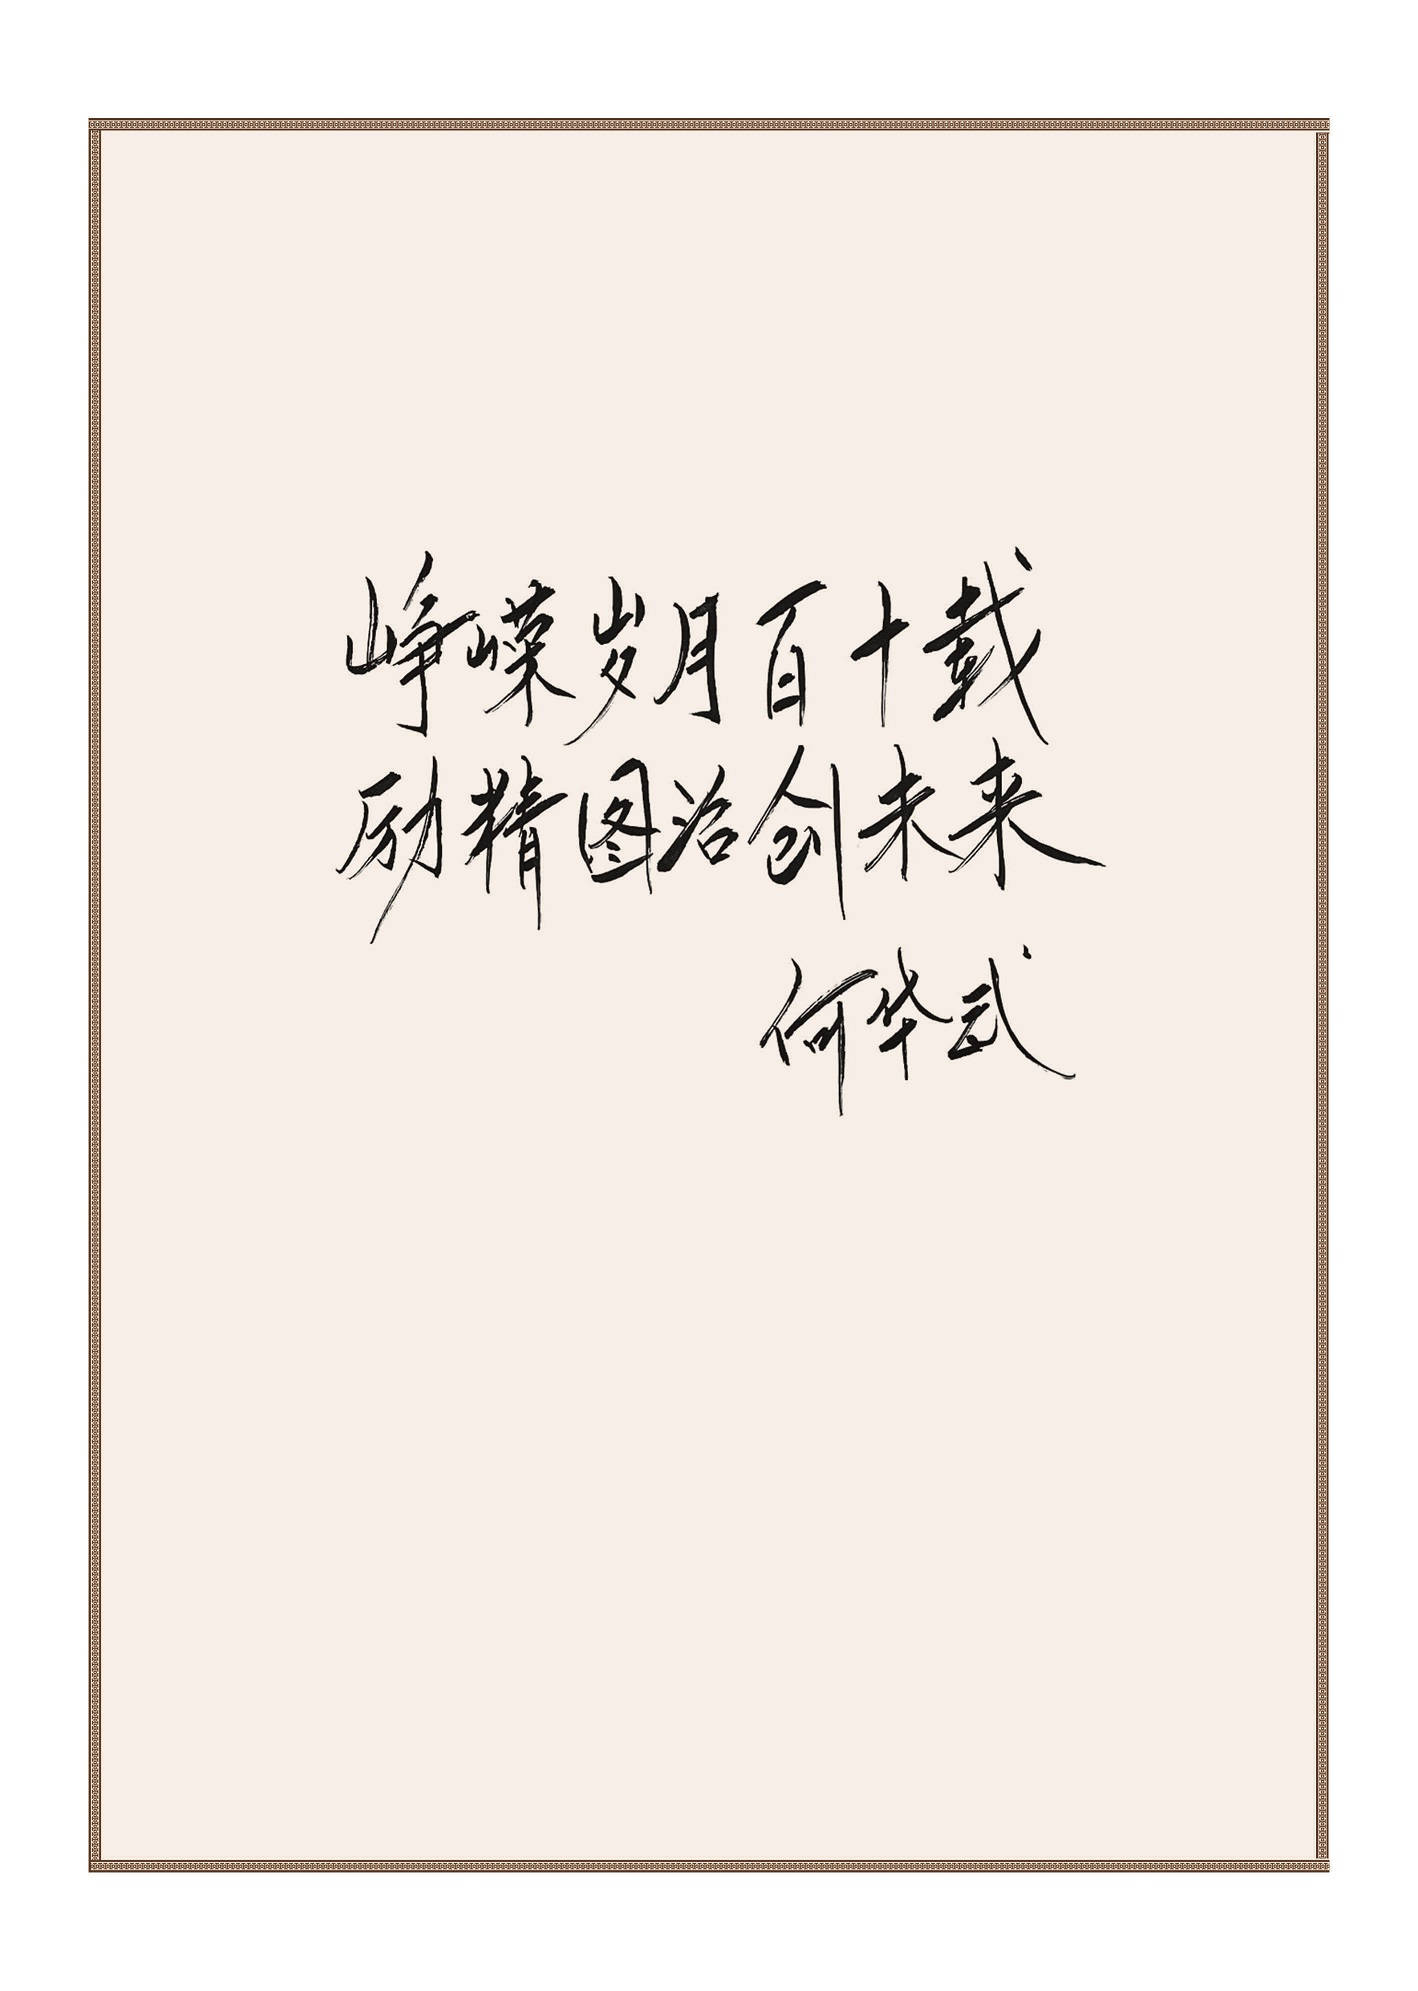 峥嵘岁月百十载
励精图治创未来
何华武